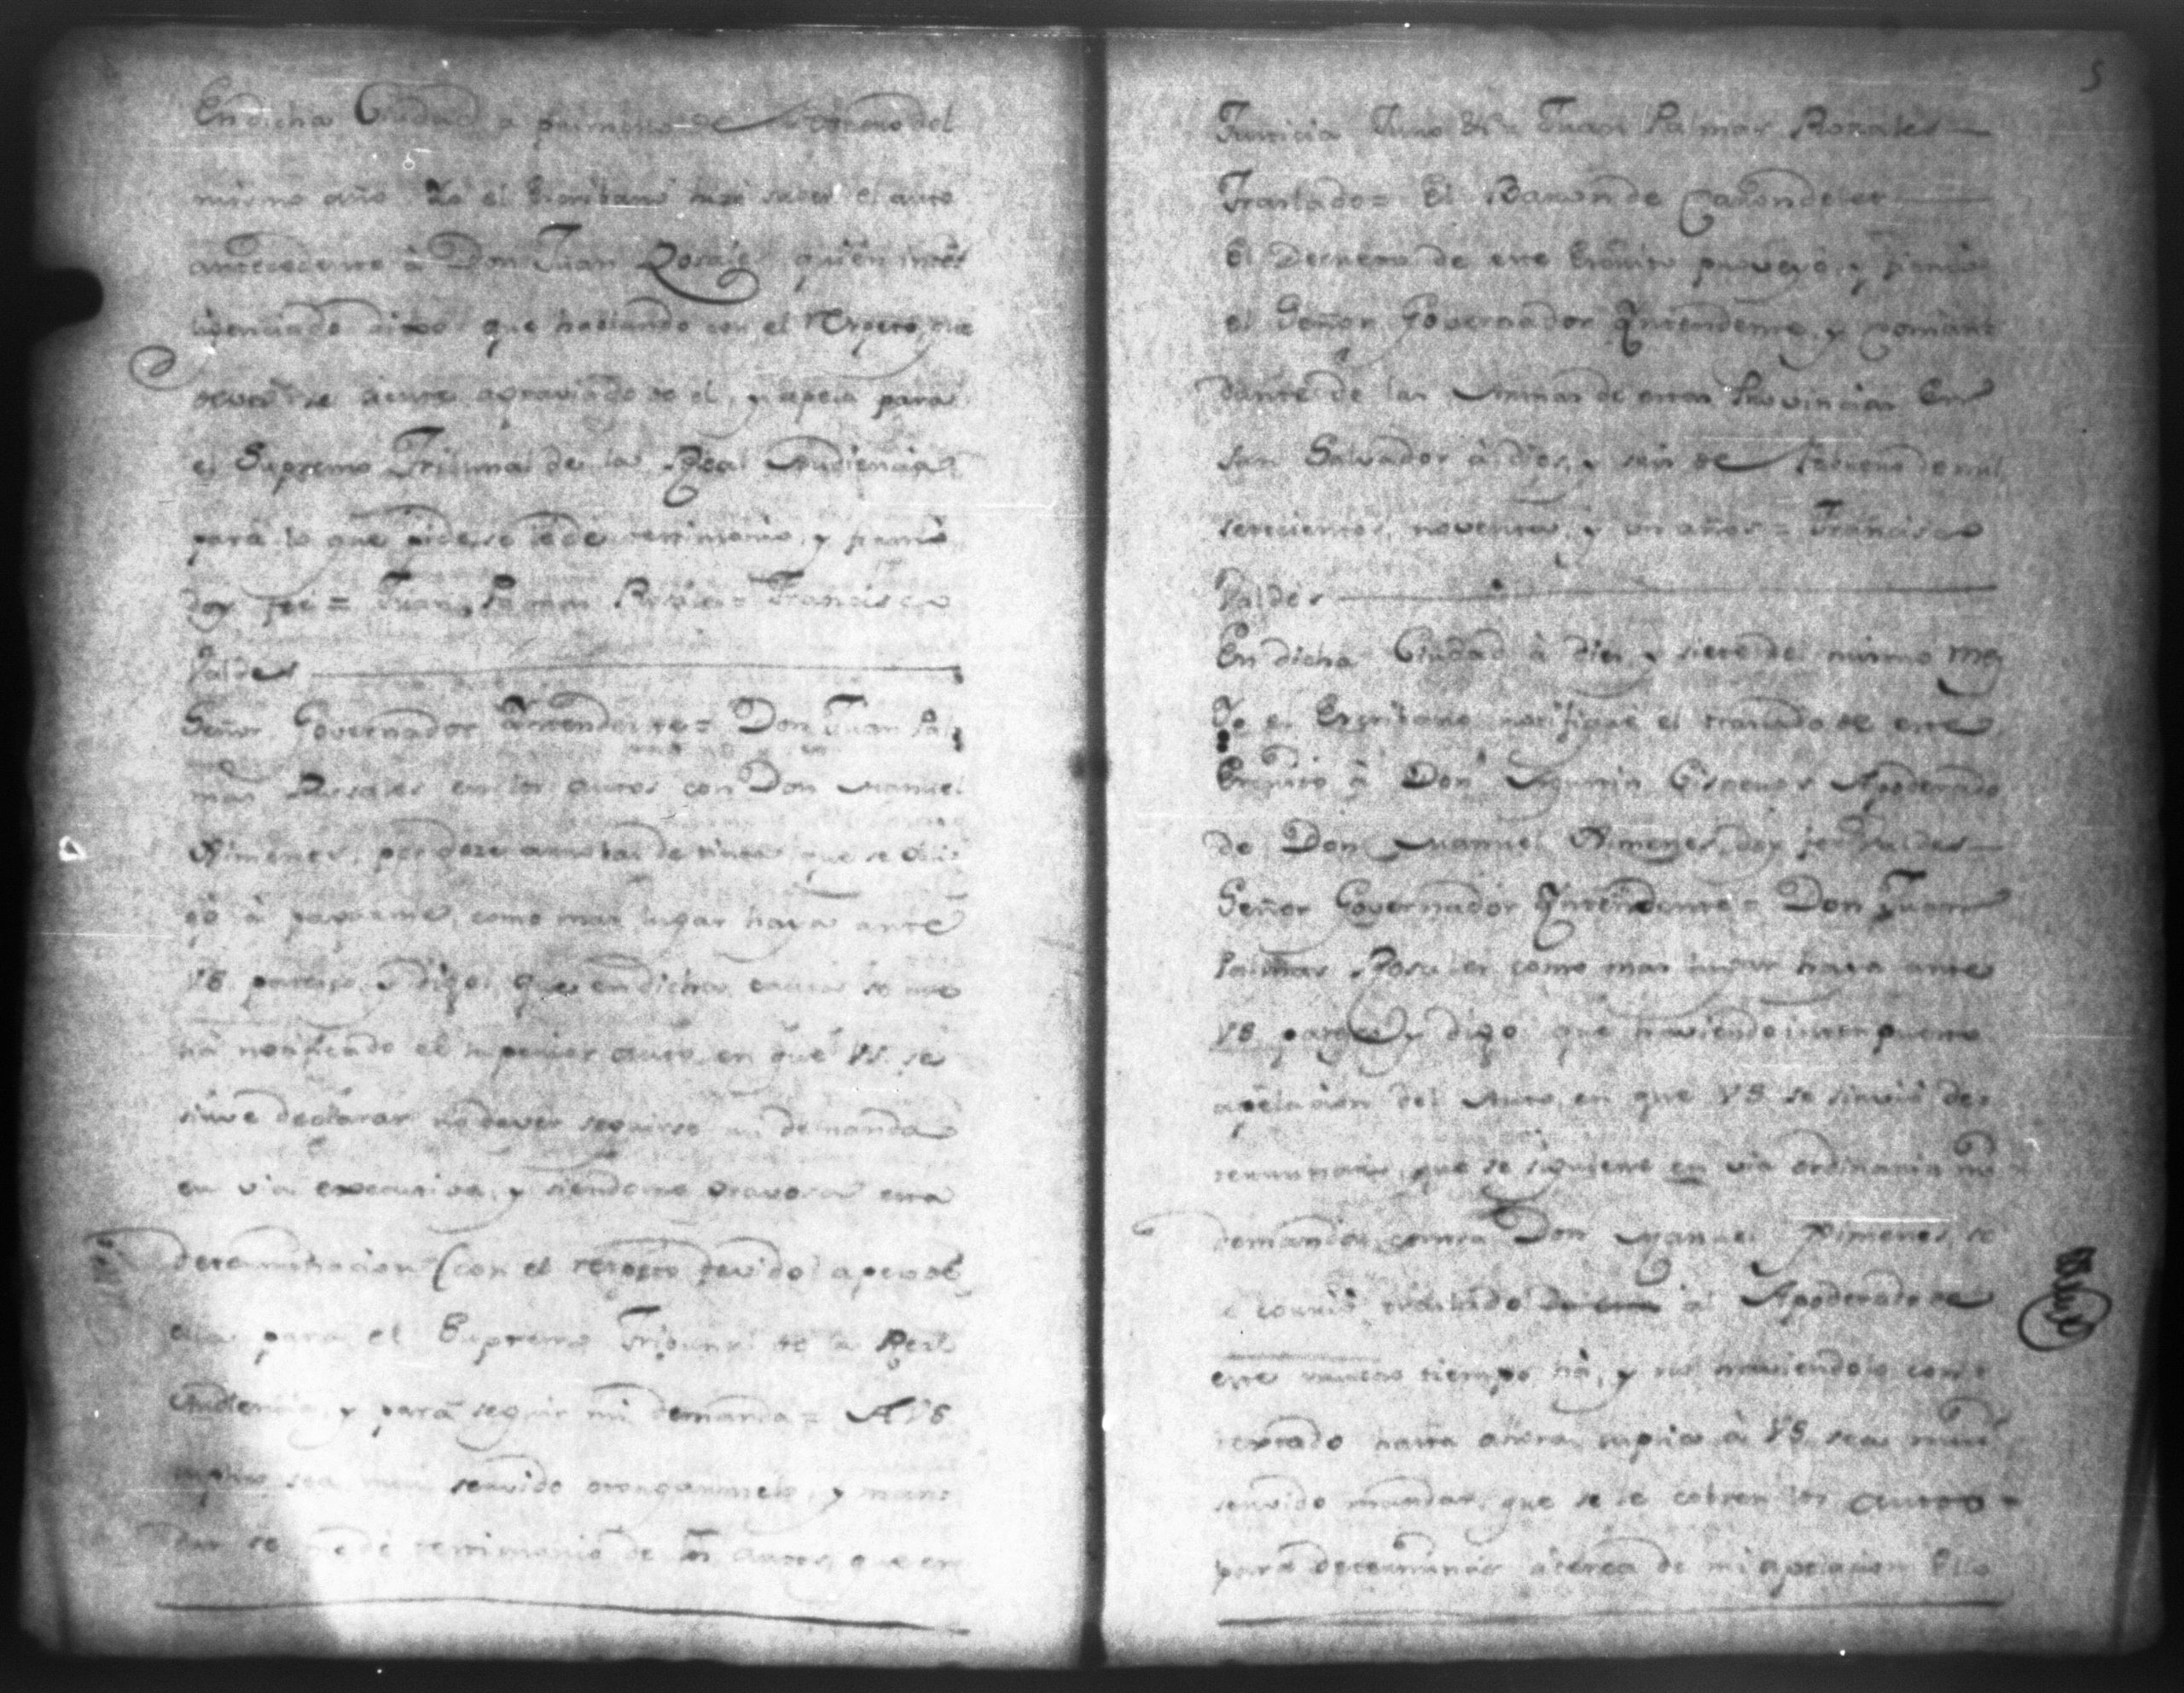 En dicha Ciudad a primero de Febrero del
mismo año Yo el Escribano hize saver el auto
antecedente à Don Juan Rosales quien inte-
ligenciado dixo que hablando con el respeto, que
deve se siente agraviado de el, y apela para
el Supremo Tribunal de la Real Audiencia
para lo que pide se le de testimonio, y firmó
doy fee = Juan Palmas Rosales = Francisco
Valdes
Señor Governador Yntendente = Don Juan Pal
mas Rosales en los autos con Don Manuel
Ximenes, por doze arrobas de tinta que se obli
gó à pagarme, como mas lugar haya ante
VS. paresco y digo: que en dicha causa se me
ha notificado el superior auto en que VS. se
sirve declarar no dever seguirse mi demanda
en via executiva, y siendome gravosa esta
determinacion (con el respeto devido) apelo de
ella para el Supremo Tribunal de la Real
Audiencia, y para seguir mi demanda = A VS
suplico sea mui servido otorgarmela, y man-
dar se me dé testimonio de los autos, que es
5
Justicia Juro &a Juan Palmas Rosales
Traslado = El Baron de Carondelet
El Decreto de este Escrito proveyó, y firmó
el Señor Governador Yntendente, y Coman-
dante de las Armas de estas Provincias En
San Salvador à dies, y seis de Febrero de mil
setecientos, noventa, y un años = Francisco
Valdes
En dicha Ciudad à dies, y siete del mismo mes
Yo el Escribano notifiqué el traslado de este
Escrito à Don Agustin Cisneros Apoderado
de Don Manuel Ximenes, doy fee Valdes
Señor Governador Yntendente = Don Juan
Palmas Rosales como mas lugar haya ante
VS. paresco y digo: que haviendo interpuesto
apelacion del Auto, en que VS. se sirvió de-
terminar, que se siguiese en via ordinaria mi
demanda, contra Don Manuel Ximenes, se
le corrió traslado al Apoderado de
este mucho tiempo hà, y no haviendolo con-
textado hasta ahora, suplico à VS. sea mui
servido mandar, que se le cobren los autos
para determinar acerca de mi apelacion